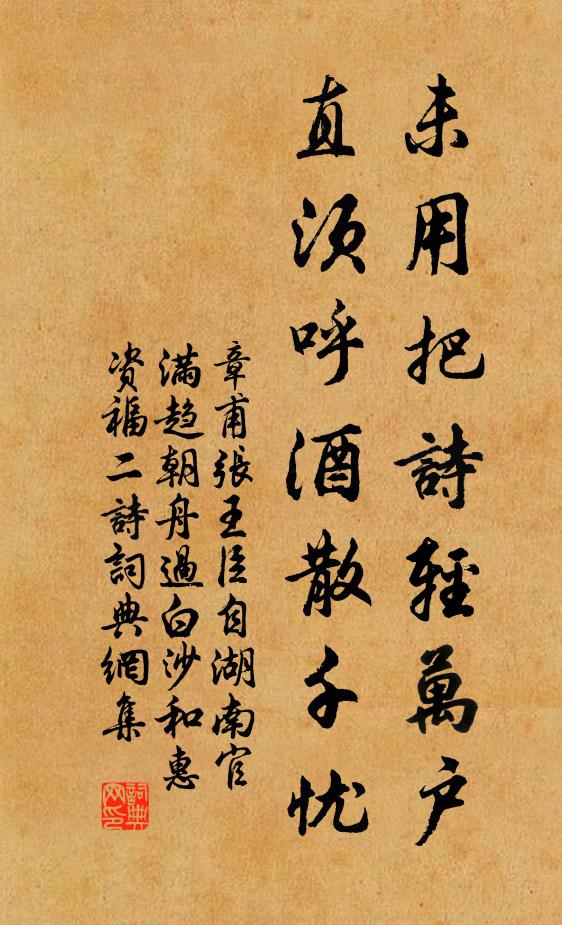 未用把詩輕萬户
直須呼酒散千忧
章甫張王臣自湖南官
滿趋朝舟過白沙和惠
资福二詩詞典網集
詞典
网印